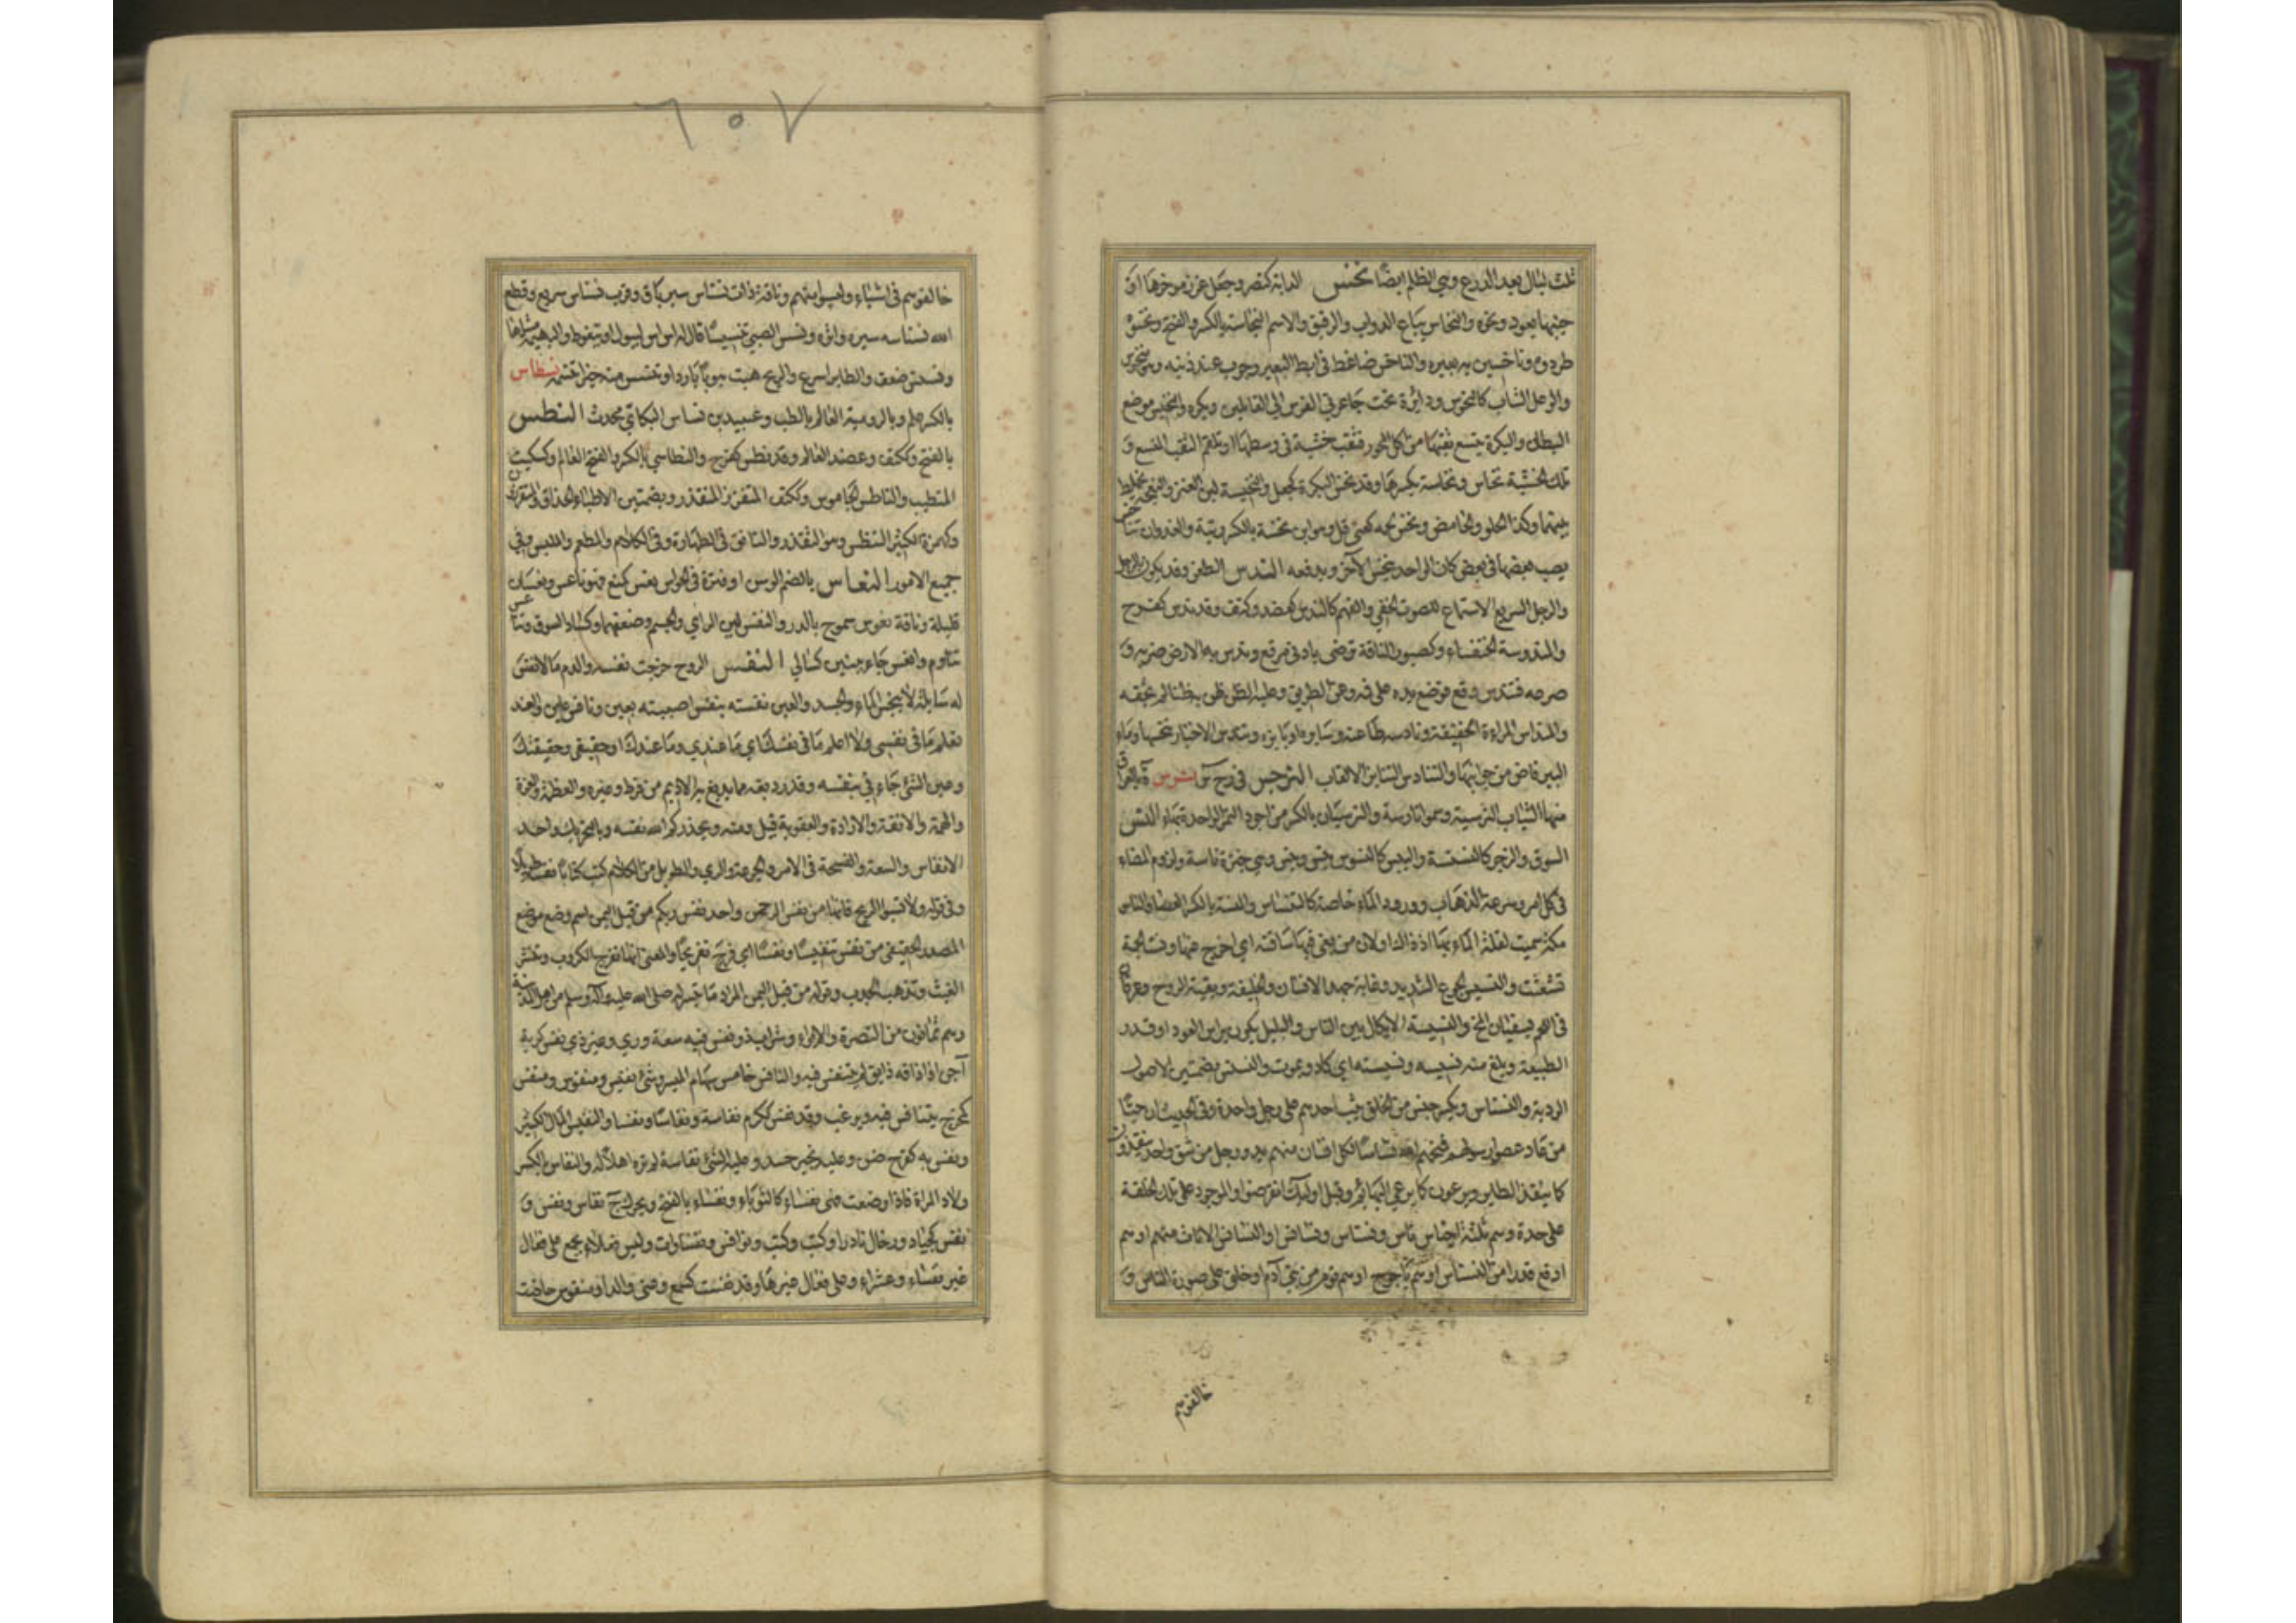 ثلث ليال بعد الدرع وهي الظلم ايضا نخس الدابة كنصر وجعل غرز موخرها او
جنبها بعود ونحوه والنخاس بياع الدواب والرقيق والاسم النخاسة بالكسر والفتح ونخسوه
طردوه وناخسين به بعيره والناخس ضاغط في ابط البعير وجرب عند ذنبه وهو منخوس
والوعل الشاب كالنخوس ودائرة تحت جاعرتي الفرس الى الفائلين ويكره والنخيس موضع
البطان والبكرة يتسع ثقبها من اكل المحور فتثقب خشبة في وسطها او تلقم الثقب المتسع و
تلك الخشبة نخاس ونخاسة بكسرهما وقد نخس البكرة كجعل والنخيسة لبن العنز والنعجة يخلط
بينهما وكذا الحلو والحامض ونخس لحمه كعني قل وهو ابن نخسة بالكسر زنية والغدران تناخس
يصب بعضها في بعض كان الواحد ينخس الآخر ويدفعه الندس الطعن وقد يكون بالرجل
والرجل السريع الاستماع للصوت الخفي والفهم كالندس كعضد وكتف وقد ندس كفرح
والمندوسة الخنفساء وكصبور الناقة ترضى بادنى مرتع وندس به الارض ضربه و
صرعه فتندس وقع فوضع يده على فيه وعن الطريق وعليه الظن ظن به ظنا لم يحقه
والمنداس المراءة الخفيفة ونادسه طاعنه وسايره او نابزه وتندس الاخبار تخبسها وماء
البير فاض من جوانبها والتنادس التنابز الالقاب النرجس في رج س نرس ة بالعراق
منها الثياب النرسية وهو انارسة والنرسيان بالكسر من اجود التمر الواحدة بهاء النس
السوق والزجر كالنسنسة واليبس كالنسوس ينس وينس وهي خبزة ناسة ولزوم المضاء
في كل امر وسرعة الذهاب وورود الماء خاصة كالتنساس والمنسة بالكسر العصا والناس
مكة سميت لقلة الماء بها اذ ذاك او لان من بغى فيها ساقته اي اخرج عنها ونست الجمة
تشعثت والنسيس الجوع الشديد وغاية جهد الانسان والخليقة وبقية الروح وعرقان
في اللحم يسقيان المخ والنسيسة الايكال بين الناس والبلل يكون براس العود اوقدر
الطبيعة وبلغ منه نسيسه ونسيسته اي كاد يموت والنسس بضمتين الاصول
الردية والنسناس ويكسر جنس من الخلق يثب احدهم على رجل واحدة وفي الحديث ان حيا
من عاد عصوا رسولهم فمسخهم الله نسناسا لكل انسان منهم يد ورجل من شق واحد ينقزون
كما ينقز الطاير ويرعون كما يرعى البهائم وقيل اوليك انقرضوا والموجود على تلك الخلقة
على حدة وهم ثلثة اجناس ناس ونسناس ونسانس او النسانس الاناث منهم او هم
ارفع قدرا من النسناس او هم يأجوج او هم قوم من بني آدم او خلق على صورة الناس و
خالفوهم
٦٥٧
خالفوهم في اشياء وليسوا منهم وناقة ذات نسناس سير باق وقرب نسناس سريع وقطع
الله نسناسه سيره واثره ونسس الصبي تنسيسا قال له اس اس ليبول او يتغوط والبهيمة مشاها
ونسنس ضعف والطاير اسرع والريح هبت هبوبا باردا وتنسس منه خبرا تنسمه نسطاس
بالكسر علم وبالرومية العالم بالطب وعبيد بن نسطاس البكائي محدث النطس
بالفتح وككتف وعضد العالم وقد نطس كفرح والنطاسي بالكسر والفتح العالم وكسكيت
المتطبب والناطس الجاسوس وككتف المتقزز المتقذر وبضمتين الاطباء الحذاق والمتقززون
وكهمزة الكثير التنطس وهو التقذر والتانق في الطهارة وفي الكلام والمطعم والملبس وفي
جميع الامور النعاس بالضم الوسن او فترة في الحواس نعس كمنع فهو ناعس ونعسان
قليلة وناقة نعوس سموح بالدر والنعس لين الراي والجسم وضعفهما وكساد السوق وتناعس
تناوم وانعس جاء ببنين كسالى النفس الروح خرجت نفسه والدم ما لا نفس
له سايلة لا ينجس الماء والجسد والعين نفسته بنفس اصبته بعين ونافس عاين والعند
تعلم ما في نفسي ولا اعلم ما في نفسك اي ما عندي وما عندك او حقيقتي وحقيقتك
وعين الشئ جاءني بنفسه وقدر دبغة مما يدبغ به الاديم من قرظ وغيره والعظمة والعزة
والهمة والانفة والارادة والعقوبة قيل ومنه ويحذركم الله نفسه وبالتحريك واحد
الانفاس والسعة والفسحة في الامر والجرعة والري والطويل من الكلام كتب كتابا نفسا طويلا
وفي قوله ولا تسبوا الريح فانها من نفس الرحمن واجد نفس ربكم من قبل اليمن اسم وضع موضع
المصدر الحقيقي من نفس تنفيسا ونفسا اي فرج تفريجا والمعنى انها تفرج الكروب وتنشر
الغيث وتذهب الجدب وقوله من قبل اليمن المراد ما تيسر له صلى الله عليه وآله وسلم من اهل المدينة
وهم يمانون من النصرة والايواء وشراب ذو نفس فيه سعة وري وغير ذي نفس كريه
آجن اذا ذاقه ذايق لم يتنفس فيه والنافس خامس سهام الميسر وشئ نفيس ومنفوس ومنفس
كمخرج يتنافس فيه ويرغب وقد نفس ككرم نفاسة ونفاسا ونفسا والنفيس المال الكثير
ونفس به كفرح ضن وعليه بخير حسد وعليه الشئ نفاسة لم يره اهلا له والنفاس بالكسر
ولاد المراة فاذا وضعت فهي نفساء كالثؤباء ونفساء بالفتح ويحرك ج نفاس ونفس و
نفس كجياد ورخال نادرا وكتب وكتب ونوافس ونفساوات وليس فعلاء يجمع على فعال
غير نفساء وعشراء وعلى فعال غيرها وقد نفست كسمع وعني والولد منفوس وحاضت